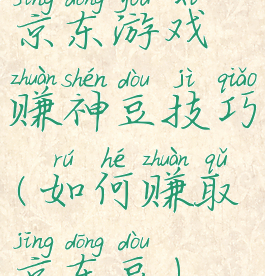 jīng dōng yóu xì
京东游戏
zhuàn shén dòu jì qiǎo
赚神豆技巧
rú hé zhuàn qǔ
(如何赚取
jīng dōng dòu
京东豆)